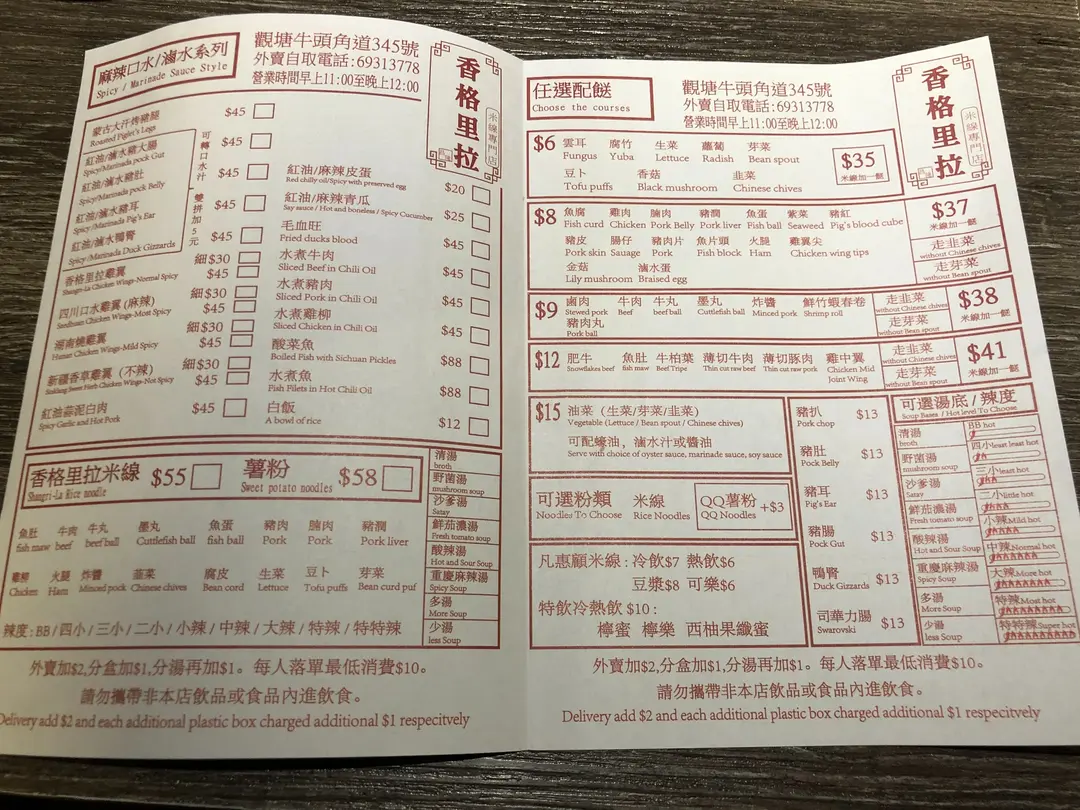 麻辣口水/滷水系列
Spicy / Marinade Sauce Style
觀塘牛頭角道345號
外賣自取電話:69313778
營業時間早上11:00至晚上12:00
香格里拉
米線專門店
蒙古大汗烤豬腿 $45
Roasted Piglet's Legs
紅油/滷水豬大腸 $45
Spicy/Marinada pock Gut
紅油/滷水豬肚 $45
Spicy/Marinada pock Belly
紅油/滷水豬耳 $45
Spicy/Marinada Pig's Ear
紅油/滷水鴨腎 $45
Spicy/Marinada Duck Gizzards
可轉口水汁
雙拼加5元
香格里拉雞翼 細$30
Shangri-La Chicken Wings-Normal Spicy $45
四川口水雞翼 (麻辣) 細$30
Seedhuan Chicken Wings-Most Spicy $45
湖南燒雞翼 細$30
Hunan Chicken Wings-Mild Spicy $45
新疆香草雞翼 (不辣) 細$30
Sinkiang Sweet Herb Chicken Wings-Not Spicy $45
紅油蒜泥白肉 $45
Spicy Garlic and Hot Pork
紅油/麻辣皮蛋 $20
Red chilly oil/Spicy with preserved egg
紅油/麻辣青瓜 $25
Say sauce / Hot and boneless / Spicy Cucumber
毛血旺 $45
Fried ducks blood
水煮牛肉 $45
Sliced Beef in Chili Oil
水煮豬肉 $45
Sliced Pork in Chili Oil
水煮雞柳 $45
Sliced Chicken in Chili Oil
酸菜魚 $88
Boiled Fish with Sichuan Pickles
水煮魚 $88
Fish Filets in Hot Chili Oil
白飯 $12
A bowl of rice
香格里拉米線 $55 薯粉 $58
Shangri-La Rice noodle Sweet potato noodles
魚肚 牛肉 牛丸 墨丸 魚蛋 豬肉 腩肉 豬潤
fish maw beef beef ball Cuttlefish ball fish ball Pork Pork Pork liver
雞柳 火腿 炸醬 韮菜 腐皮 生菜 豆卜 芽菜
Chicken Ham Minced pock Chinese chives Bean cord Lettuce Tofu puffs Bean curd puf
辣度: BB/四小/三小/二小/小辣/中辣/大辣/特辣/特特辣
清湯
broth
野菌湯
mushroom soup
沙爹湯
Satay
鮮茄濃湯
Fresh tomato soup
酸辣湯
Hot and Sour Soup
重慶麻辣湯
Spicy Soup
多湯
More Soup
少湯
less Soup
外賣加$2,分盒加$1,分湯再加$1。每人落單最低消費$10。
請勿攜帶非本店飲品或食品內進飲食。
Delivery add $2 and each additional plastic box charged additional $1 respecitvely
任選配餸
Choose the courses
觀塘牛頭角道345號
外賣自取電話:69313778
營業時間早上11:00至晚上12:00
香格里拉
米線專門店
$6 雲耳 腐竹 生菜 蘿蔔 芽菜
Fungus Yuba Lettuce Radish Bean spout
豆卜 香菇 韭菜
Tofu puffs Black mushroom Chinese chives
$35
米線加一餸
$8 魚腐 雞肉 腩肉 豬潤 魚蛋 紫菜 豬紅
Fish curd Chicken Pork Belly Pork liver Fish ball Seaweed Pig's blood cube
豬皮 腸仔 豬肉片 魚片頭 火腿 雞翼尖
Pork skin Sausage Pork Fish block Ham Chicken wing tips
金菇 滷水蛋
Lily mushroom Braised egg
$37
米線加一餸
走韭菜
without Chinese chives
走芽菜
without Bean spout
$9 鹵肉 牛肉 牛丸 墨丸 炸醬 鮮竹蝦春卷
Stewed pork beef beef ball Cuttlefish ball Minced pork Shrimp roll
豬肉丸
Pork ball
走韭菜
without Chinese chives
走芽菜
without Bean spout
$38
米線加一餸
$12 肥牛 魚肚 牛柏葉 薄切牛肉 薄切豚肉 雞中翼
Snowflakes beef fish maw Beef Tripe Thin cut raw beef Thin cut raw pork Chicken Mid Joint Wing
走韭菜
without Chinese chives
走芽菜
without Bean spout
$41
米線加一餸
$15 油菜 (生菜/芽菜/韭菜)
Vegetable (Lettuce / Bean spout / Chinese chives)
可配蠔油, 滷水汁或醬油
Serve with choice of oyster sauce, marinade sauce, soy sauce
可選粉類 米線 QQ薯粉 +$3
Noodles To Choose Rice Noodles QQ Noodles
凡惠顧米線:冷飲$7 熱飲$6
豆漿$8 可樂$6
特飲冷熱飲 $10:
檸蜜 檸樂 西柚果纖蜜
豬扒 $13
Pork chop
豬肚 $13
Pock Belly
豬耳 $13
Pig's Ear
豬腸 $13
Pock Gut
鴨腎 $13
Duck Gizzards
司華力腸 $13
Swarovski
可選湯底/辣度
Soup Bases / Hot level To Choose
清湯
broth
野菌湯
mushroom soup
沙爹湯
Satay
鮮茄濃湯
Fresh tomato soup
酸辣湯
Hot and Sour Soup
重慶麻辣湯
Spicy Soup
多湯
More Soup
少湯
less Soup
BB hot
四小least least hot
三小least hot
二小little hot
小辣Mild hot
中辣Normal hot
大辣More hot
特辣Most hot
特特辣Super hot
外賣加$2,分盒加$1,分湯再加$1。每人落單最低消費$10。
請勿攜帶非本店飲品或食品內進飲食。
Delivery add $2 and each additional plastic box charged additional $1 respecitvely